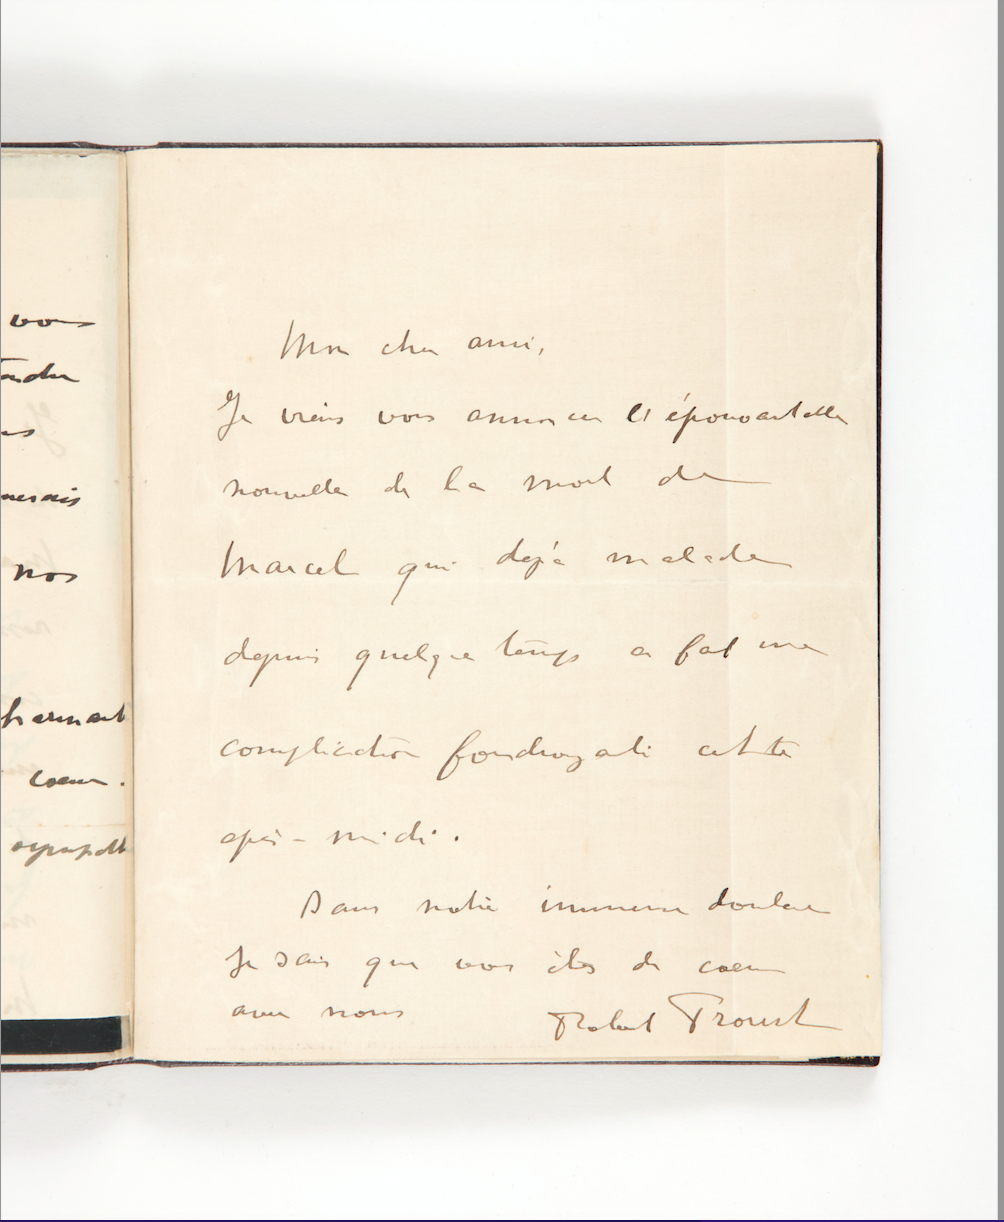 vous
nos
coeur.
Mon cher ami,
Je viens vous annoncer l'épouvantable
nouvelle de la mort de
Marcel qui déjà malade
depuis quelque temps a fait une
complication foudroyante cette
après-midi.
Dans notre immense douleur
Je sais que vous êtes de coeur
avec nous
Robert Proust